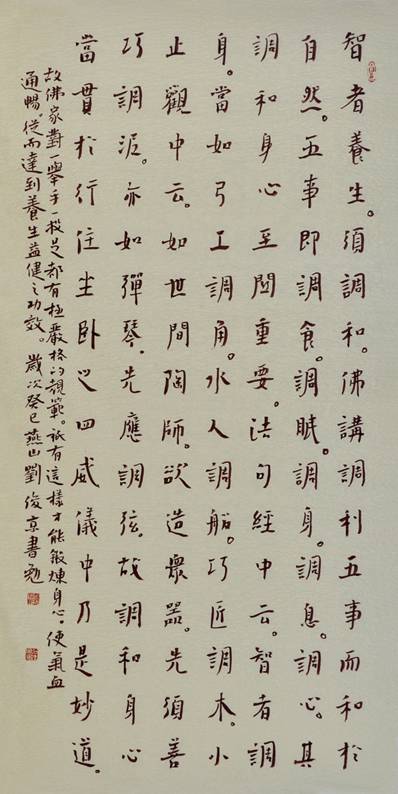 智者養生。須調和。佛講調利五事而和於
自然。五事即調食。調眠。調身。調息。調心。其
調和身心至關重要。法句經中云。智者調
身。當如弓工調角。水人調船。巧匠調木。小
止觀中云。如世間陶師。欲造衆器。先須善
巧調泥。亦如彈琴。先應調弦。故調和身心
當貫於行住坐卧之四威儀中乃是妙道。
故佛家對一舉手一投足都有極嚴格的規範。祇有這樣才能鍛煉身心、使氣血
通暢。從而達到養生益健之功效。歲次癸巳燕山劉俊京書